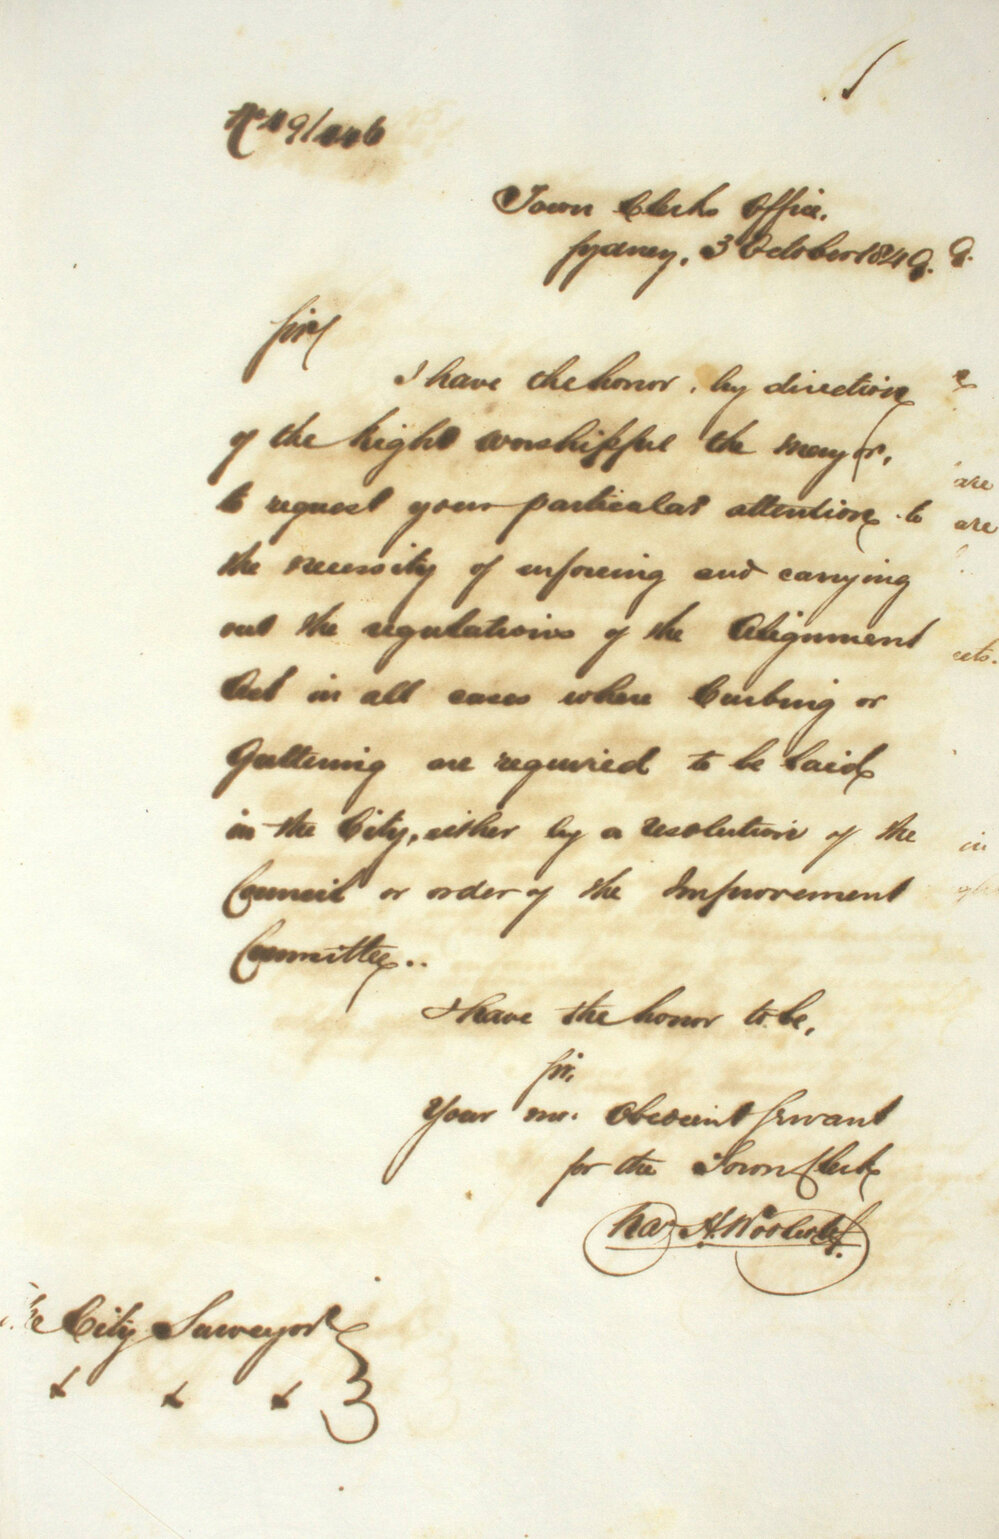 No 49/446
Town Clerks Office.
Sydney, 3 October 1849.
Sir,
I have the honor, by direction
of the Right Worshipful the Mayor,
to request your particular attention to
the necessity of enforcing and carrying
out the regulations of the Alignment
Act in all cases where Curbing or
Guttering are required to be laid
in the City, either by a resolution of the
Council or order of the Improvement
Committee..
I have the honor to be,
Sir,
Your mo. Obedient Servant
for the Town Clerk
Chas. H. Woolcott.
The City Surveyor
are
are
in